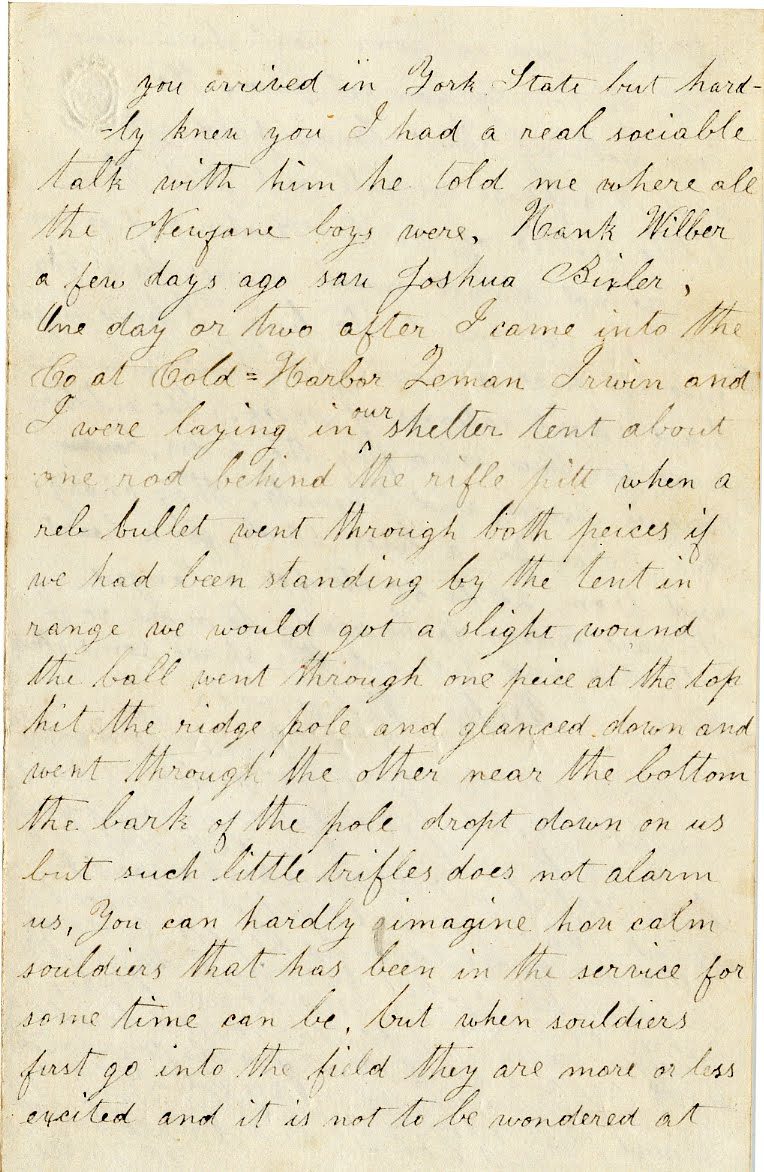 you arrived in York State but hard-
-ly knew you I had a real sociable
talk with him he told me where all
the Newfane boys were, Hank Wilber
a few days ago saw Joshua Bixler,
One day or two after I came into the
Co at Cold=Harbor Leman Irwin and
I were laying in our shelter tent about
one rod behind the rifle pitt when a
reb bullet went through both peices if
we had been standing by the tent in
range we would got a slight wound
the ball went through one peice at the top
hit the ridge pole and glanced down and
went through the other near the bottom
the bark of the pole dropt down on us
but such little trifles does not alarm
us, You can hardly imagine how calm
souldiers that has been in the service for
some time can be, but when souldiers
first go into the field they are more or less
excited and it is not to be wondered at